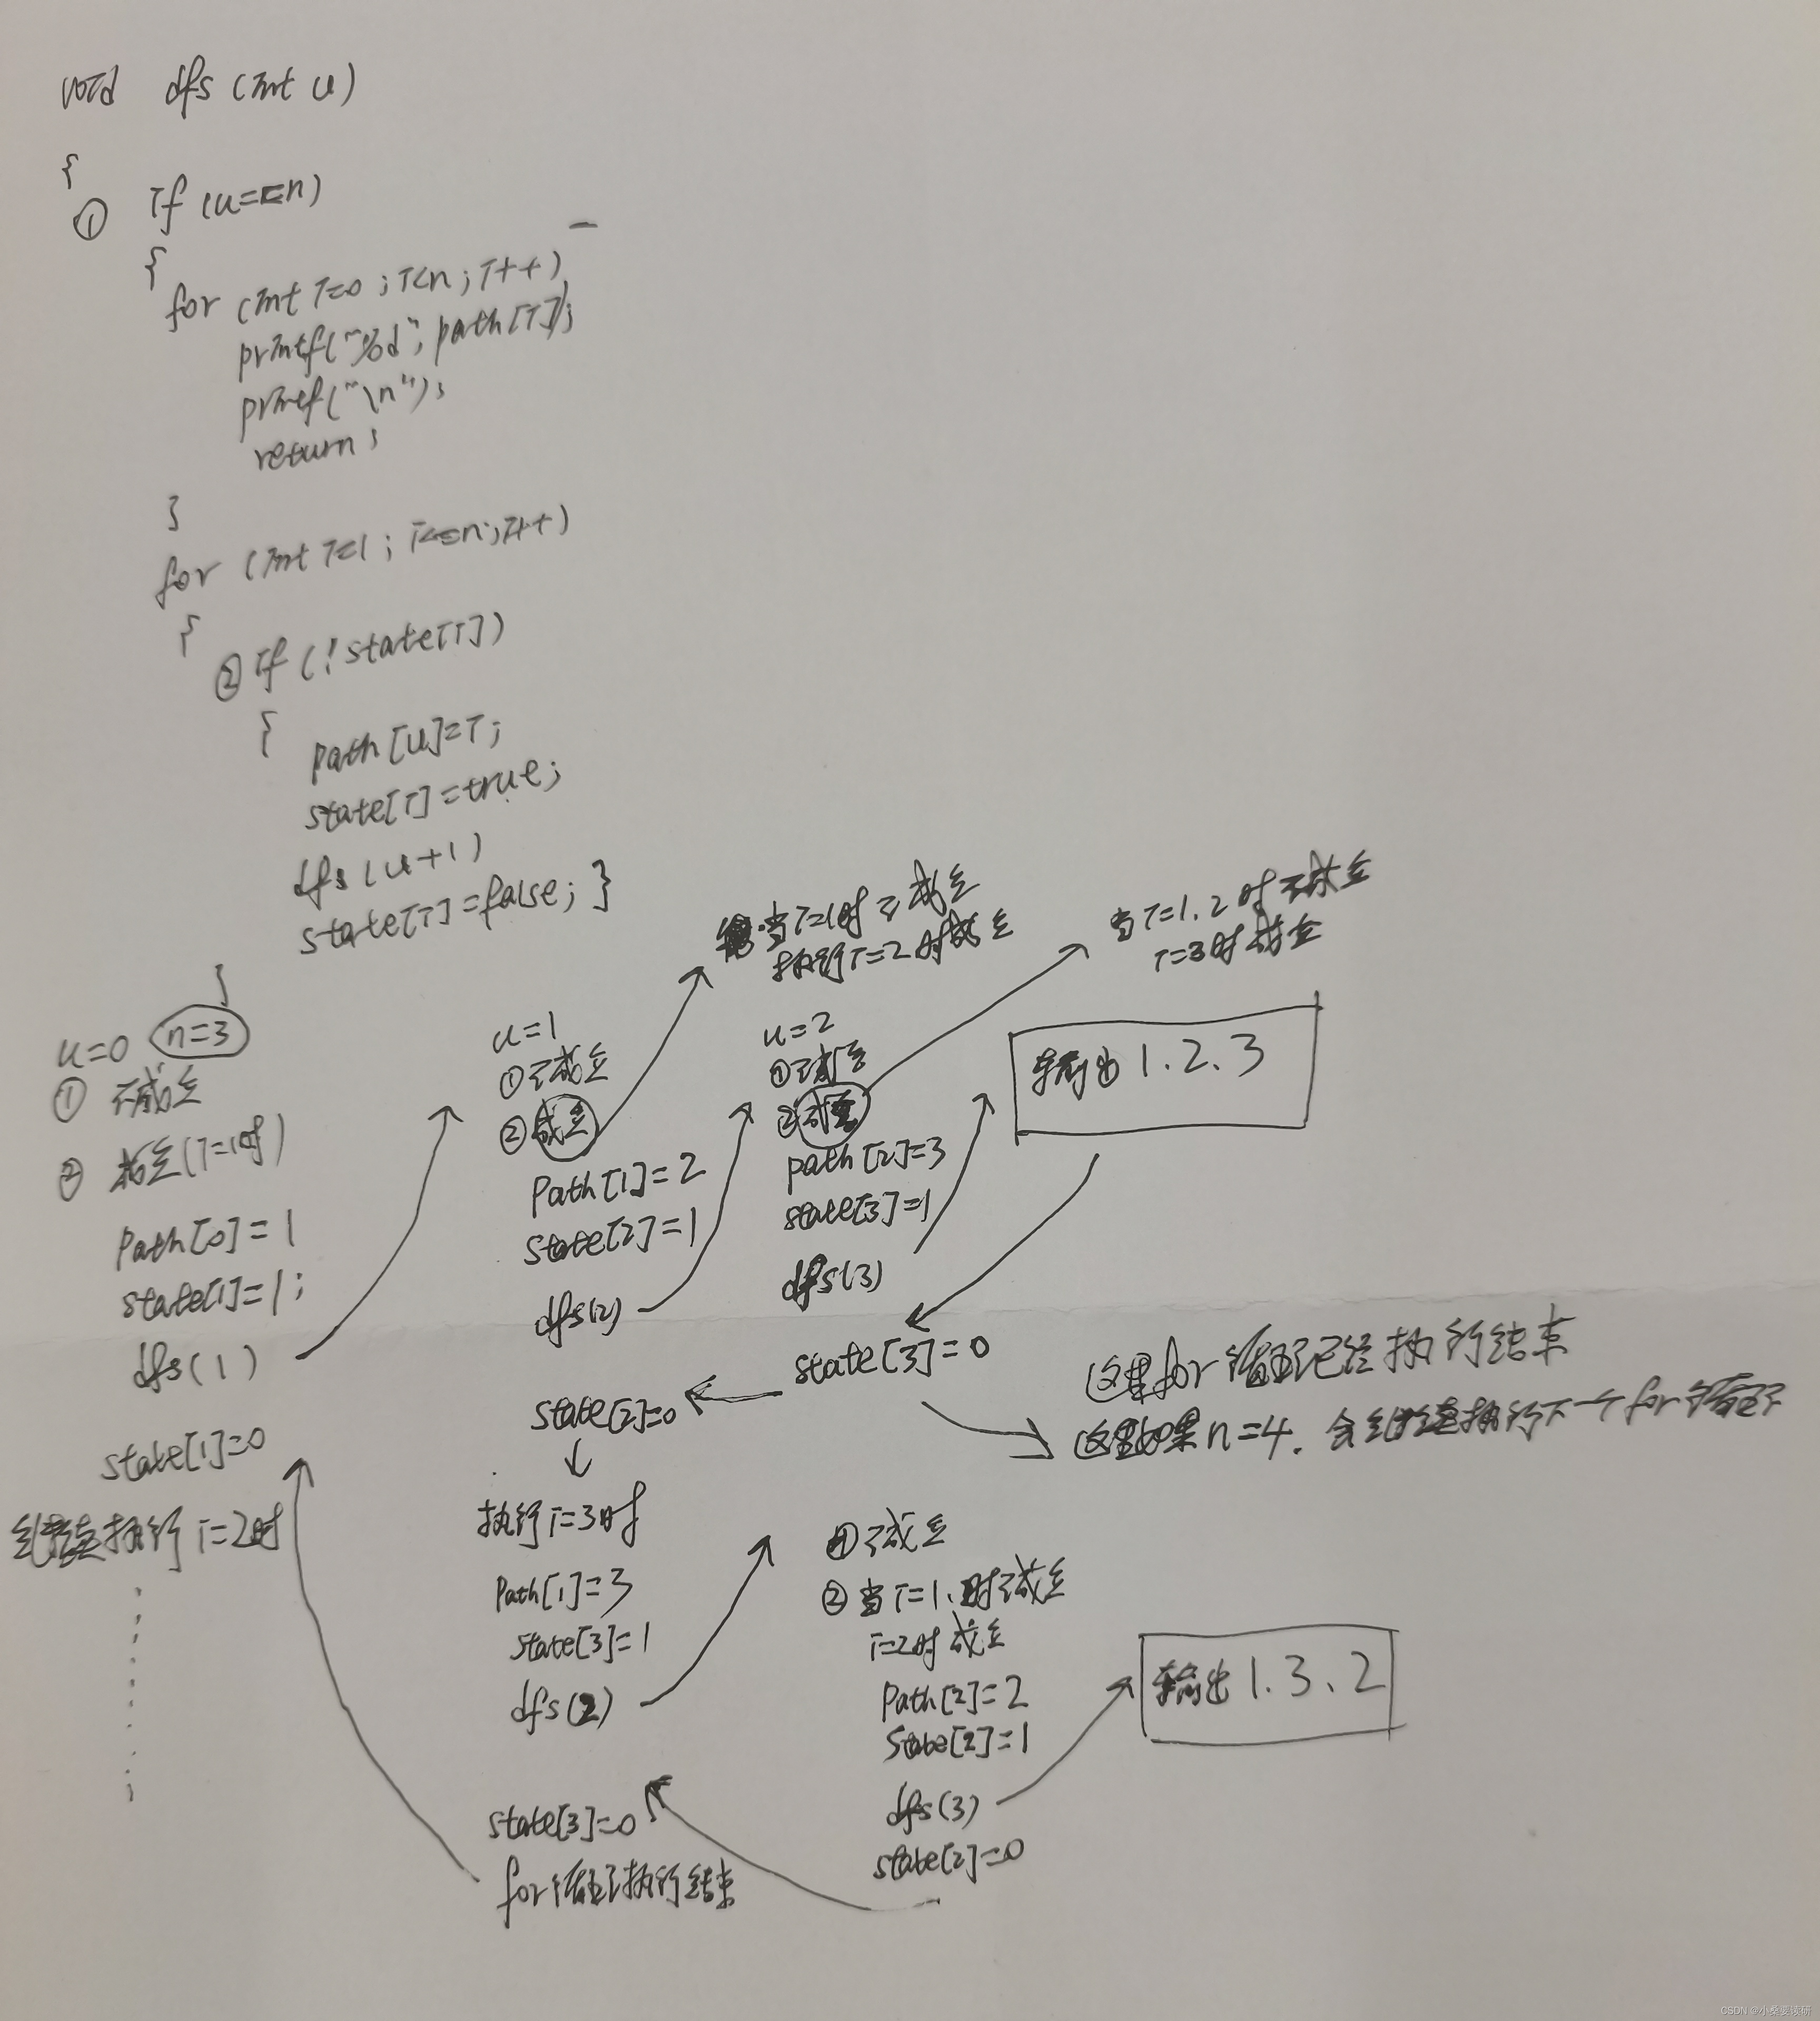 void dfs (int u)
{
① if (u==n)
{
for (int i=0; i<n; i++)
printf("%d", path[i]);
printf("\n");
return;
}
for (int i=1; i<=n; i++)
{
② if (!state[i])
{
path[u]=i;
state[i]=true;
dfs(u+1)
state[i]=false; }
}
u=0 n=3
① 不成立
② 成立(i=1时)
path[0]=1
state[1]=1;
dfs(1)
state[1]=0
继续执行 i=2时
当i=1时不成立
执行i=2时成立
u=1
①不成立
②成立
path[1]=2
state[2]=1
dfs(2)
state[2]=0
执行i=3时
path[1]=3
state[3]=1
dfs(2)
state[3]=0
for循环执行结束
当i=1.2时不成立
i=3时成立
u=2
①不成立
②成立
path[2]=3
state[3]=1
dfs(3)
state[3]=0
输出1.2.3
这里for循环已经执行结束
这里如果n=4.会继续执行下一个for循环
① 不成立
② 当i=1.时不成立
i=2时成立
path[2]=2
state[2]=1
dfs(3)
state[2]=0
输出1.3.2
CSDN @小桑要读研